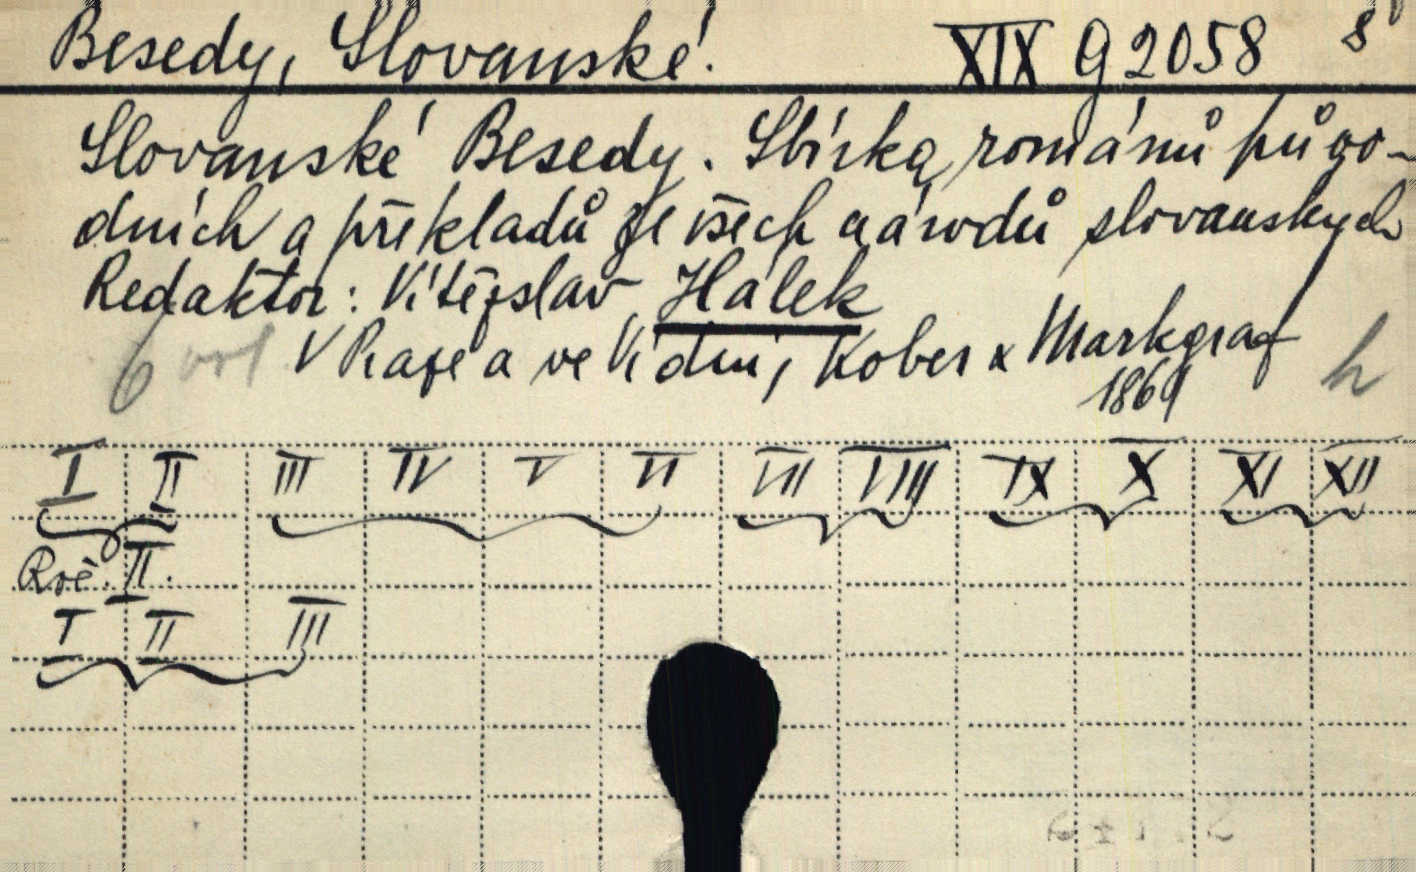 Besedy, Slovanské. XIX G 2058 8°
Slovanské Besedy. Sbírka románů půvo-
dních a překladů ze všech národů slovanských
Redaktor: Vítězslav Hálek
6 vol V Praze a ve Vídni, Kober & Markgraf
1861 h
I II III IV V VI VII VIII IX X XI XII
Roč. II.
I II III